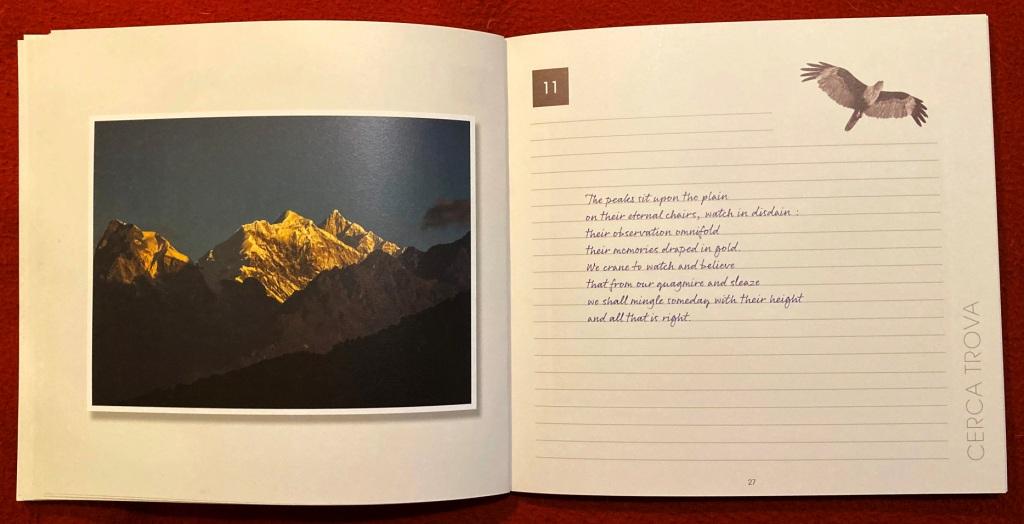 11
The peaks sit upon the plain
on their eternal chairs, watch in disdain :
their observation omnifold
their memories draped in gold.
We crane to watch and believe
that from our quagmire and sleaze
we shall mingle someday with their height
and all that is right.
CERCA TROVA
27